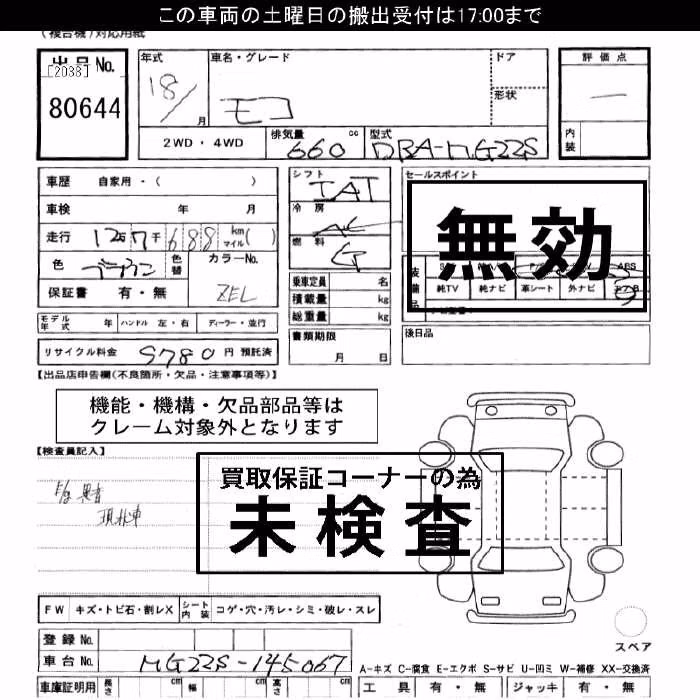 この車両の土曜日の搬出受付は17:00まで
(複合機)対応用紙
出品No.
[2088]
80644
年式
18/
月
車名・グレード
モコ
ドア
形状
評価点
—
内装
2WD・4WD
排気量
660
cc
型式
DBA-MG22S
車歴 自家用・( )
車検 年 月
走行 127千688 km マイル( )
色 ブラウン 色替
カラーNo.
ZEL
保証書 有・無
シフト
IAT
冷房
AC
燃料
G
乗車定員 名
積載量 kg
総重量 kg
書類期限
月 日
セールスポイント
無効
装備品
ABS
純TV 純ナビ 革シート 外ナビ エアB
後日品
モデル年式 年 ハンドル 左・右 ディーラー・並行
リサイクル料金 9780 円 預託済
【出品店申告欄(不良箇所・欠品・注意事項等)】
機能・機構・欠品部品等は
クレーム対象外となります
【検査員記入】
現状車
買取保証コーナーの為
未検査
FW キズ・トビ石・割レX シート内装 コゲ・穴・汚レ・シミ・破レ・スレ
登録No.
車台No. MG22S-145067
スペア
A-キズ C-腐食 E-エクボ S-サビ U-凹ミ W-補修 XX-交換済
車庫証明用 長さ cm 幅 cm 高さ cm
工具 有・無 ジャッキ 有・無